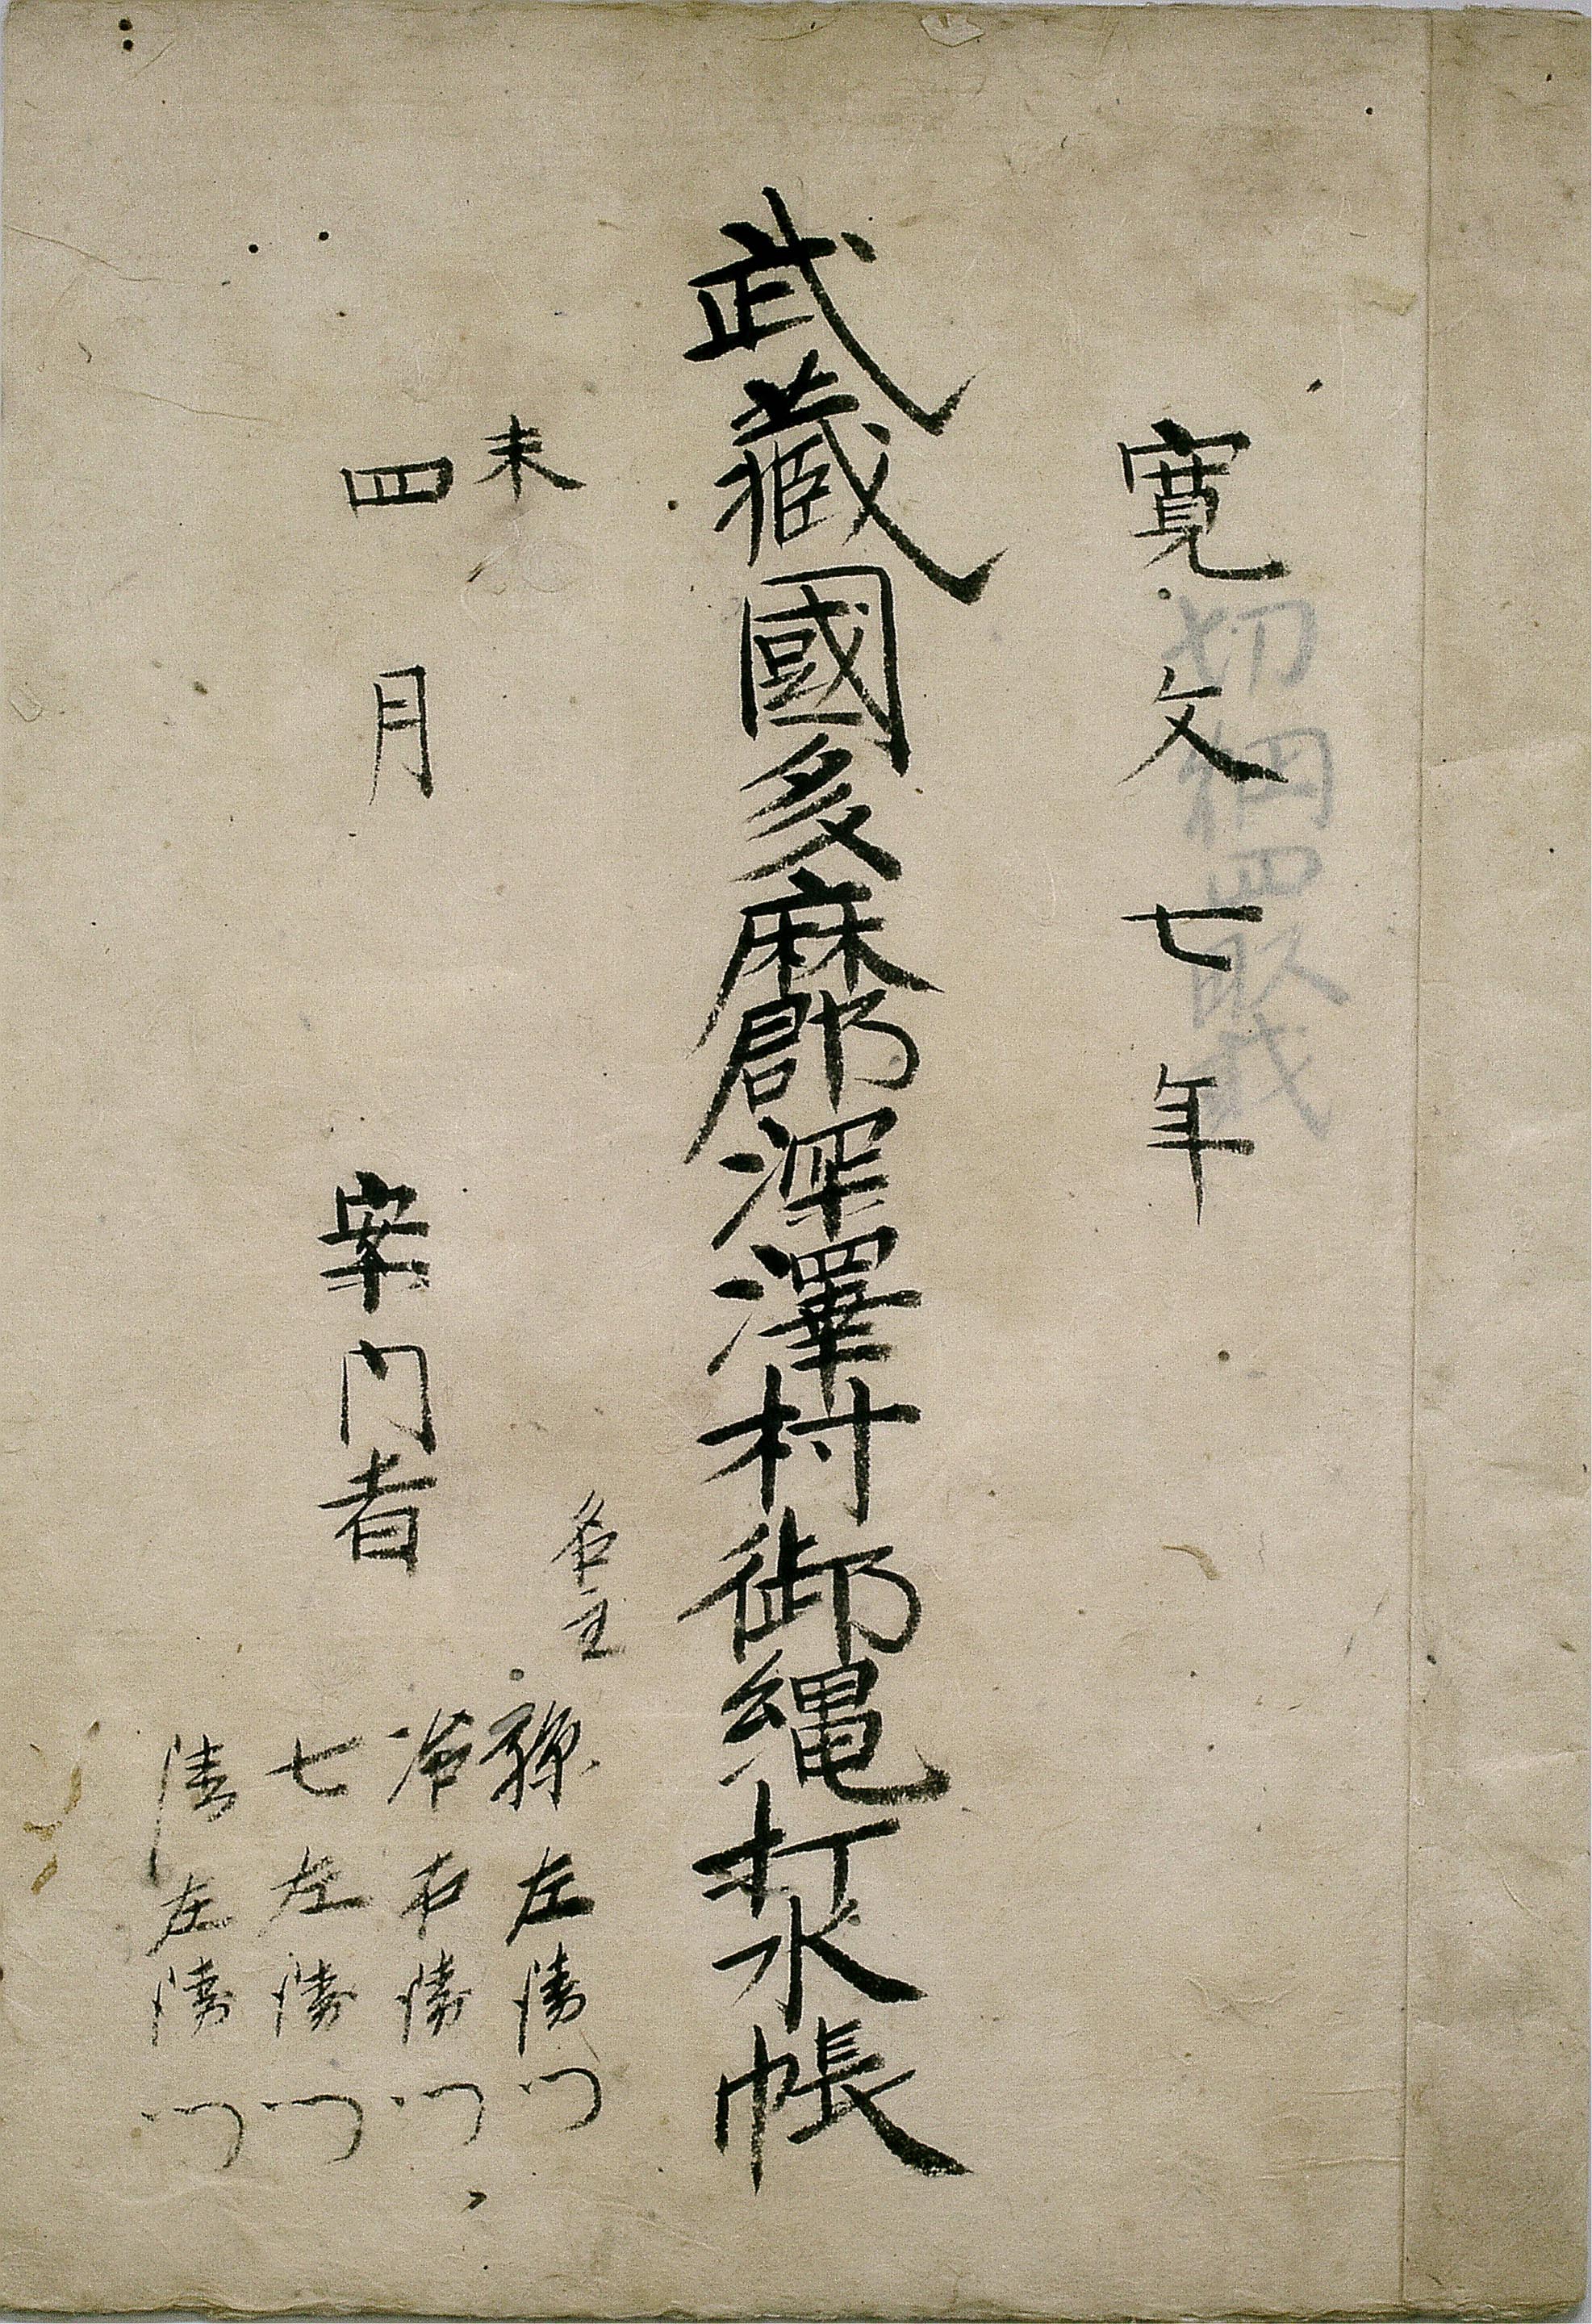 寛文七年
武藏國多麻郡深澤村御縄打水帳
未
四月
案内者
名主
孫左衛門
治右衛門
七左衛門
清左衛門